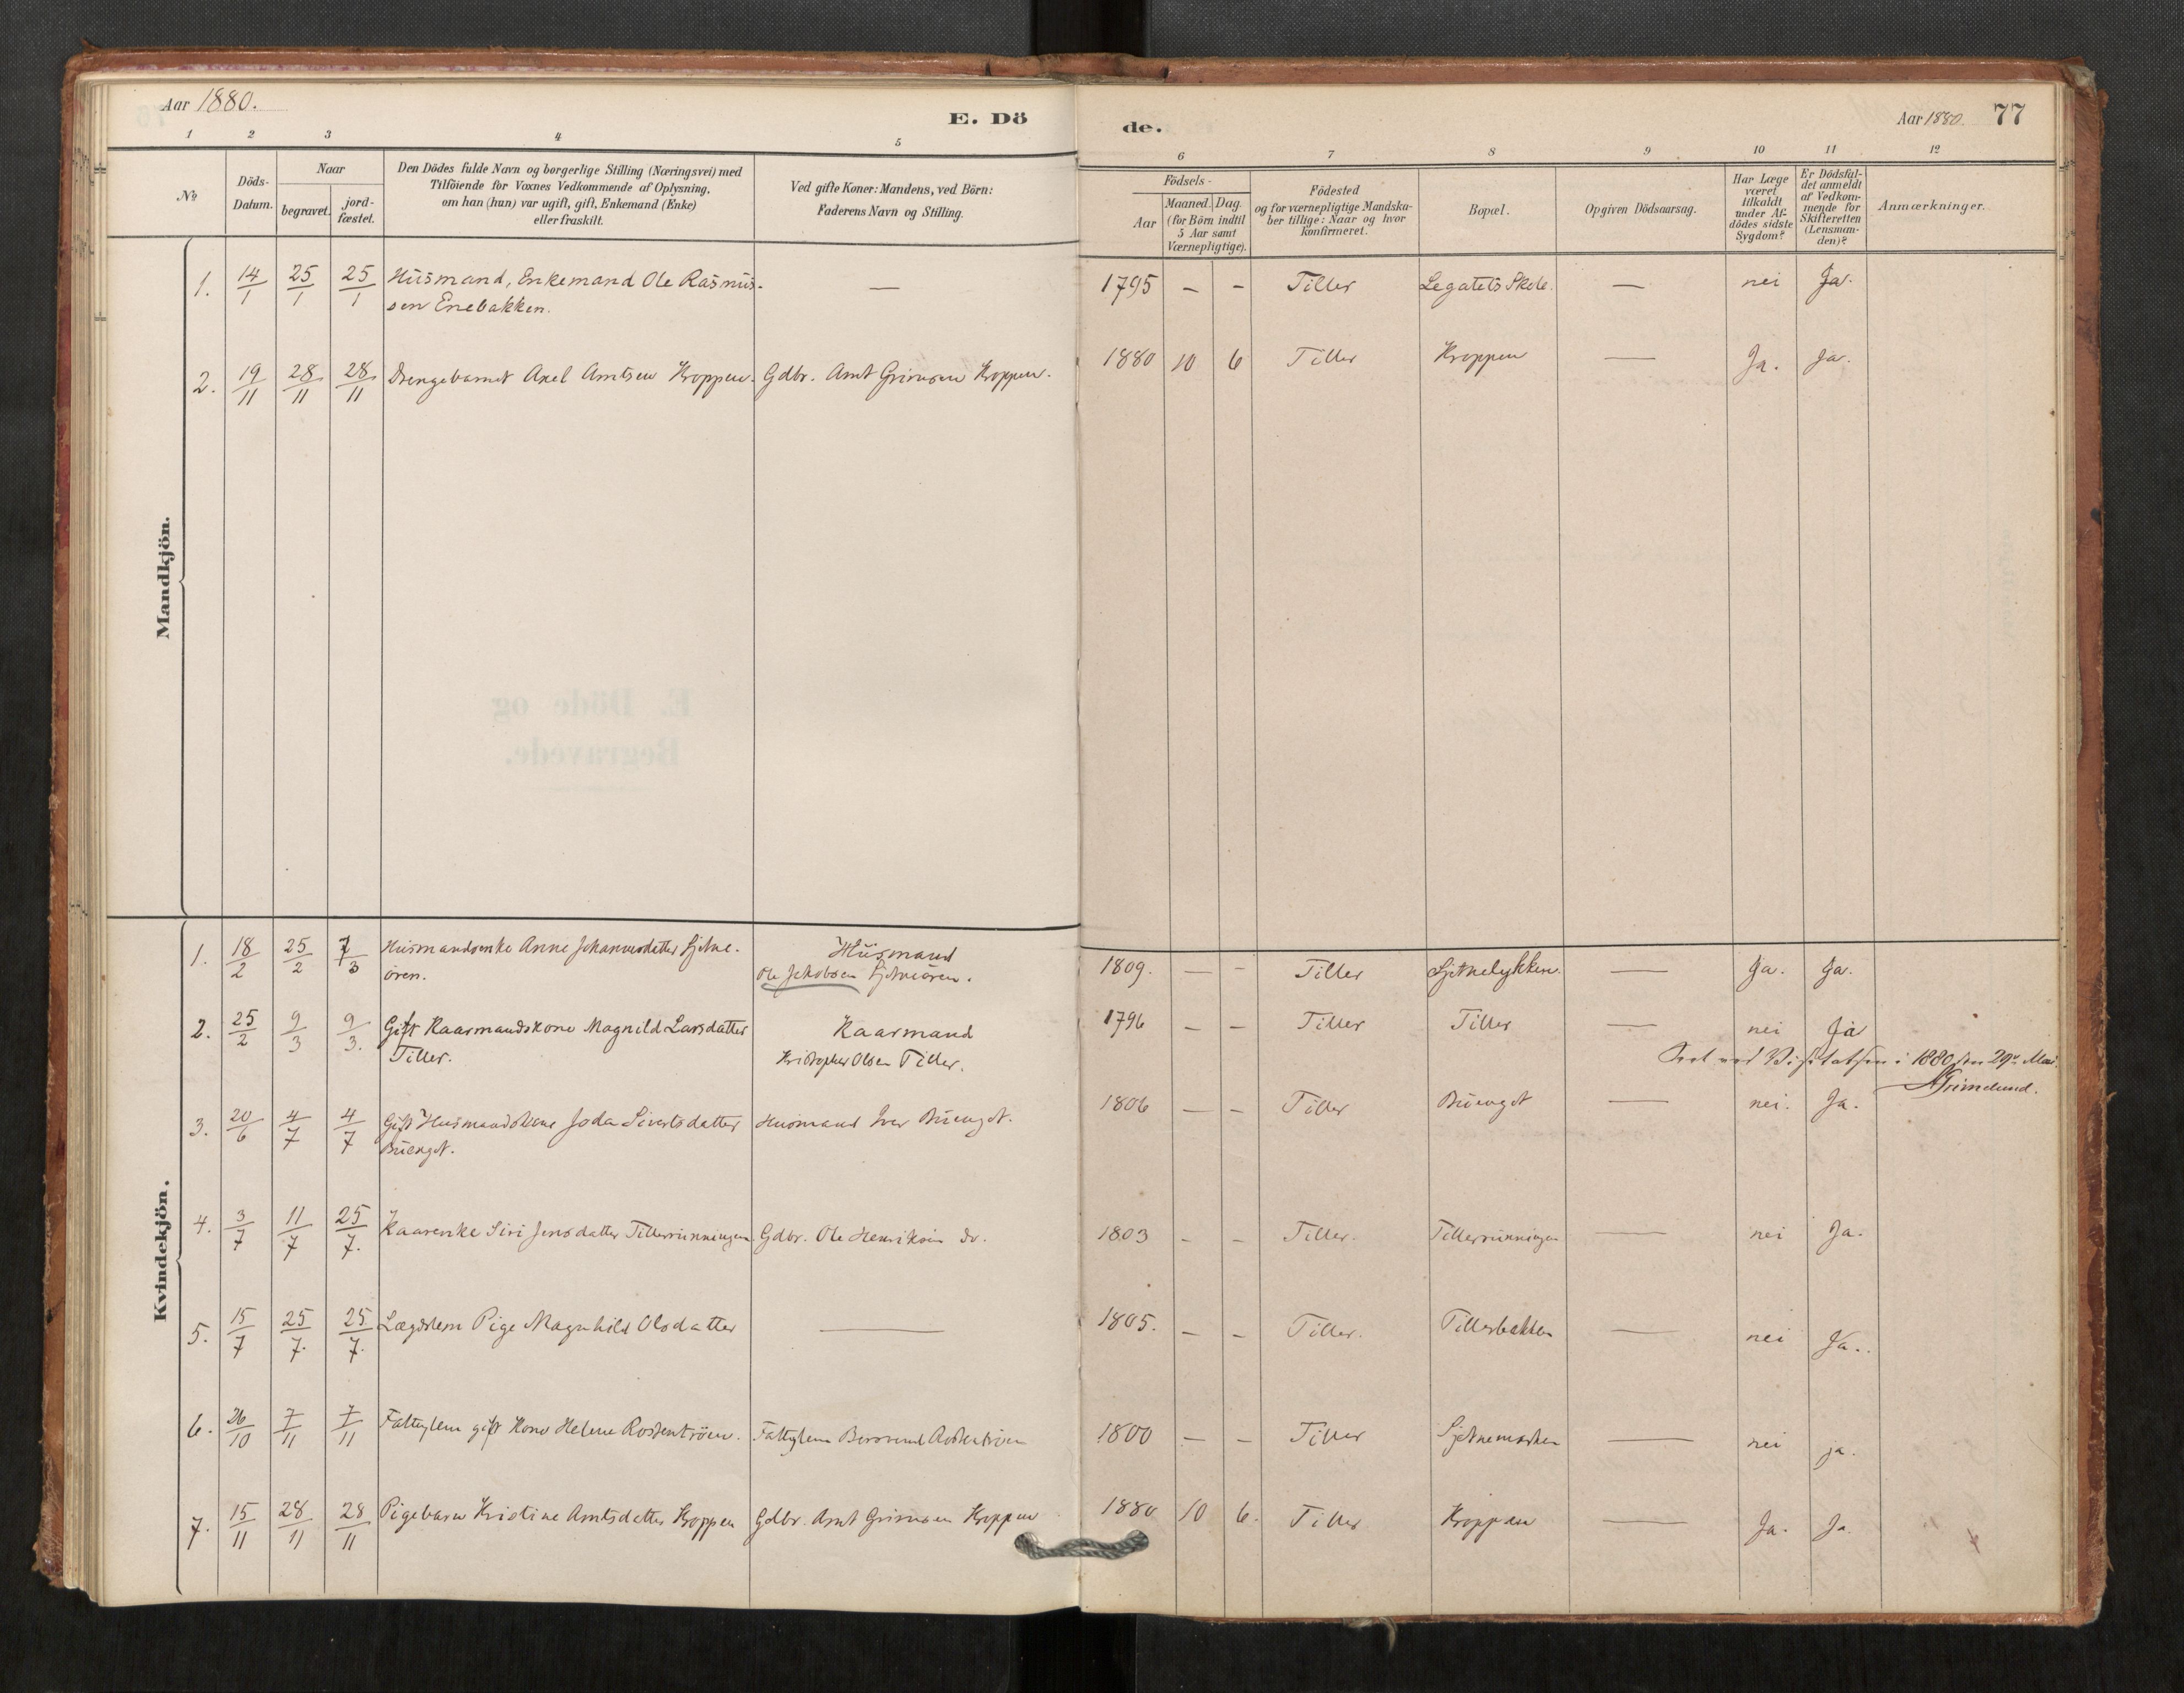 Aar 1880.
E. Dö
de.
Aar 1880. 77
1 2 3 4 5 6 7 8 9 10 11 12
No
Döds-
Datum.
Naar
begravet.
jord-
fæstet.
Den Dödes fulde Navn og borgerlige Stilling (Næringsvei) med
Tilföiende for Voxnes Vedkommende af Oplysning,
om han (hun) var ugift, gift, Enkemand (Enke)
eller fraskilt.
Ved gifte Koner: Mandens, ved Börn:
Faderens Navn og Stilling.
Födsels-
Aar
Maaned. Dag.
(for Börn indtil
5 Aar samt
Værnepligtige).
Födested
og for værnepligtige Mandska-
ber tillige: Naar og hvor
konfirmeret.
Bopæl.
Opgiven Dödsaarsag.
Har Læge
været
tilkaldt
under Af-
dödes sidste
Sygdom?
Er Dödsfal-
det anmeldt
af Vedkom-
mende for
Skifteretten
(Lensman-
den)?
Anmærkninger.
Mandkjön.
1. 14/1 25/1 25/1 Husmand, Enkemand Ole Rasmus- — 1795 — — Tiller Legatets Skole. — nei Ja.
sen Enebakken.
2. 19/11 28/11 28/11 Drengebarnet Axel Arntsen Kroppen. Gdbr. Arnt Grimsen Kroppen. 1880 10 6 Tiller Kroppen — Ja. Ja.
Kvindekjön.
1. 18/2 25/2 7/3 Husmandsenke Anne Johannesdatter Sjetne- Husmand 1809. — — Tiller Sjetnelykken. — Ja. Ja.
ören. Ole Jakobsen Sjetneören.
2. 25/2 9/3 9/3. Gift Kaarmandskone Magnild Larsdatter Kaarmand 1796 — — Tiller Tiller — nei Ja
Tiller. Kristopher Olsen Tiller.
ved Visitatsen i 1880 den 29de Mai.
Grimelund.
3. 20/6 4/7 4/7 Gift Husmandskone Sivertsdatter Husmand Iver Buenget. 1806 — — Tiller Buenget — nei. Ja.
Buenget.
4. 3/7 11/7 25/7. Kaarenke Siri Jensdatter Tillerrunningen Gdbr. Ole Henriksen do. 1803 — — Tiller. Tillerrunningen — nei Ja.
5. 15/7 25/7. 25/7. Lægdslem Pige Magnhild Olsdatter — 1805. — — Tiller. Tillerbakken — nei Ja.
6. 26/10 7/11 7/11 Fattiglem gift Kone Helene Rostentröen. Fattiglem 1800 — — Tiller Sjetnemarken — nei ja.
7. 15/11 28/11 28/11 Pigebarn Kristine Arntsdatter Kroppen Gdbr. Arnt Grimsen Kroppen 1880 10 6. Tiller Kroppen — Ja. Ja.